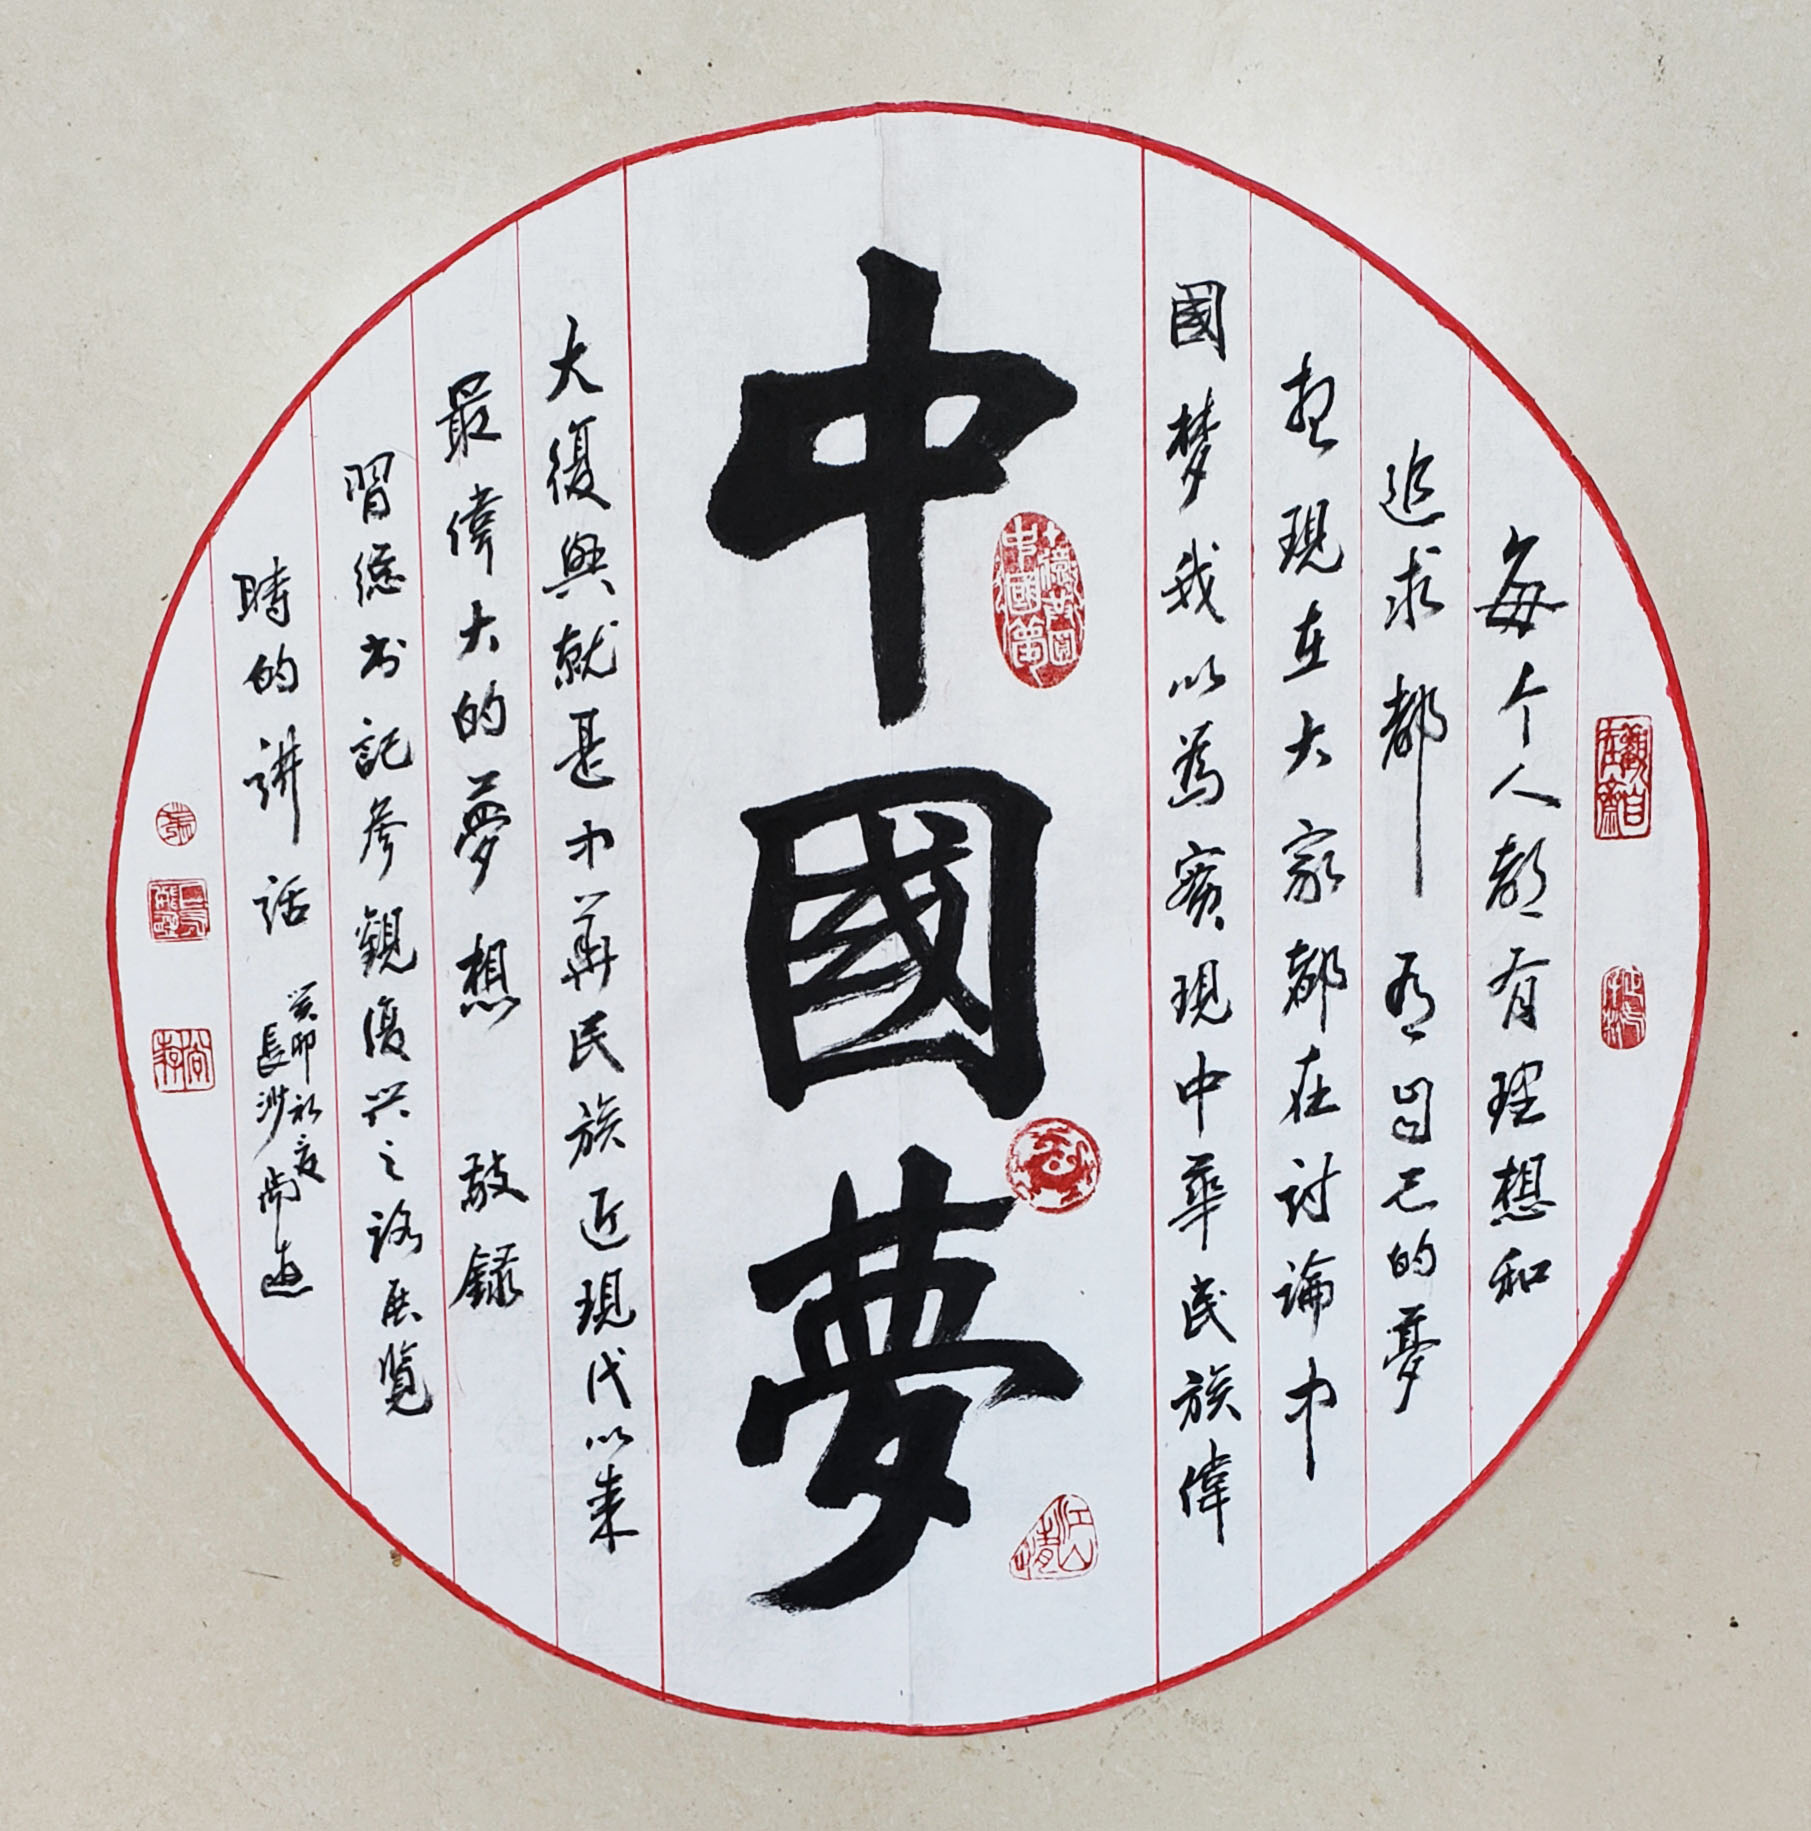 每个人都有理想和
追求都有自己的夢
想現在大家都在討論中
國梦我以為實現中華民族偉
中國夢
十億共圓中國夢
大復興就是中華民族近現代以来
最偉大的夢想 敬録
習總书記参觀復兴之路展覽
時的讲話
癸卯初夏
長沙尚